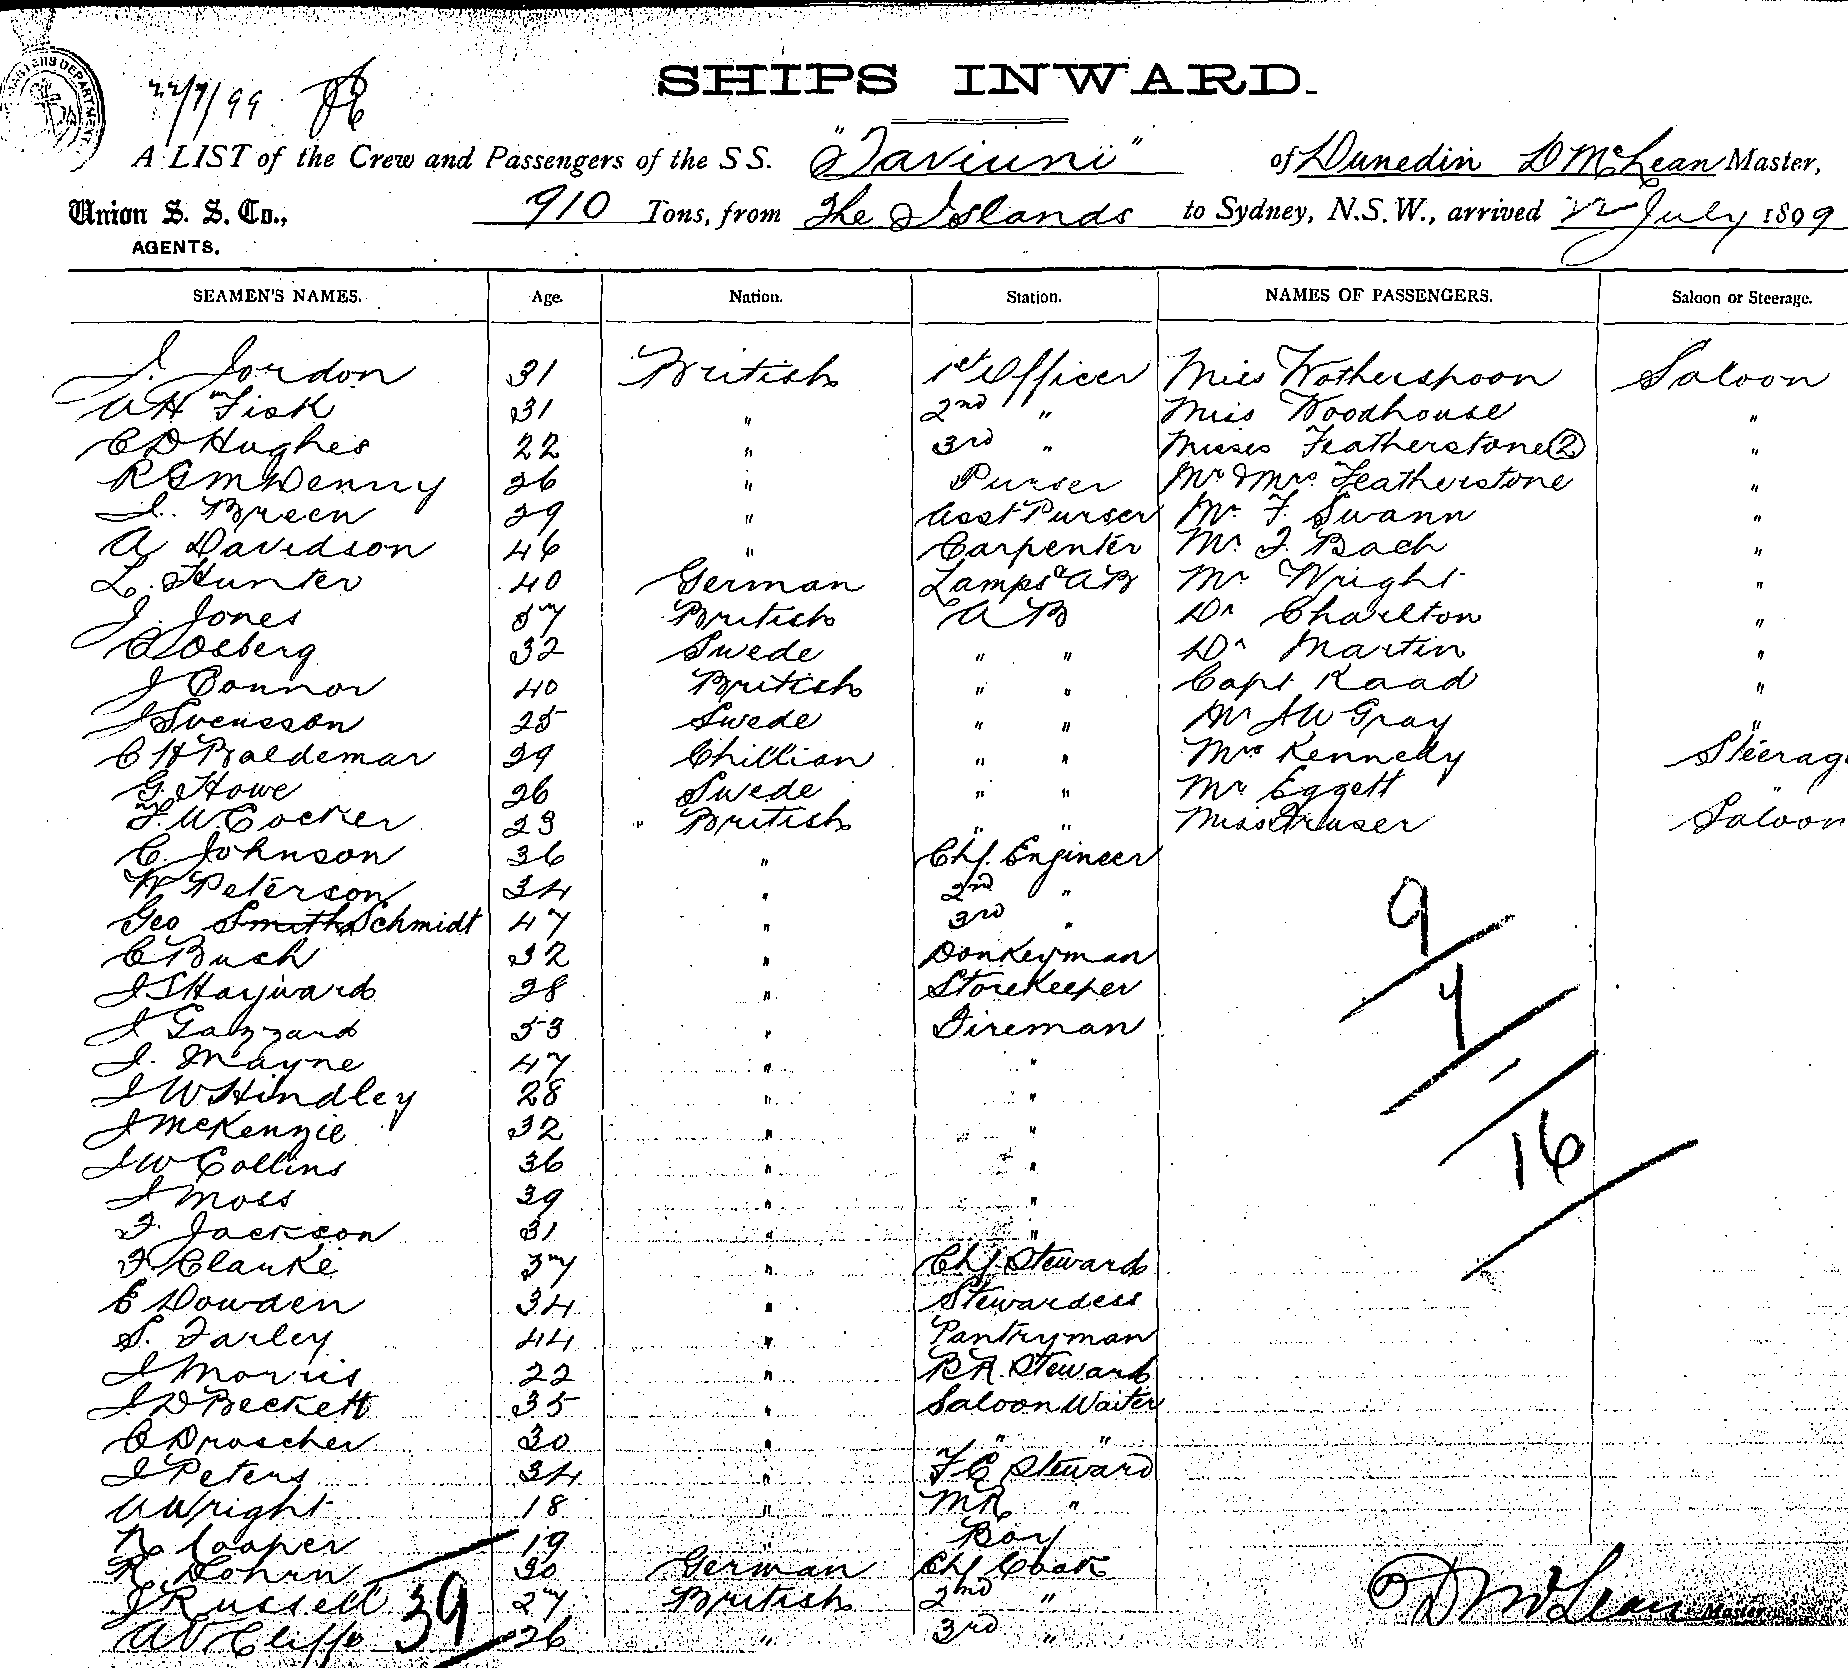 22/7/99
SHIPS INWARD.
A LIST of the Crew and Passengers of the S S. "Taviuni" of Dunedin D McLean Master,
Union S. S. Co., 910 Tons, from The Islands to Sydney, N.S.W., arrived 22 July 1899
AGENTS.
SEAMEN'S NAMES. Age. Nation. Station. NAMES OF PASSENGERS. Saloon or Steerage.
J. Jordon 31 British 1st Officer Miss Wotherspoon Saloon
A H Fisk 31 " 2nd " Miss Woodhouse "
C D Hughes 22 " 3rd " Misses Featherstone 2 "
R G M Denny 26 " Purser Mr & Mrs Featherstone "
J. Breen 29 " Asst Purser Mr. F. Swann "
A Davidson 46 " Carpenter Mr. J. Bach "
L. Hunter 40 German Lamps & AB Mr Wright "
J. Jones 57 British A B Dr Charlton "
C Osberg 32 Swede " " Dr Martin "
J Connor 40 British " " Capt Kaad "
J Svensson 25 Swede " " Mr A W Gray "
C H Baldemar 29 Chillian " " Mrs Kennedy Steerage
G. Howe 26 Swede " " Mr Eggett
F. W Cocker 23 " British " " Miss Fraser Saloon
C. Johnson 36 " Chf. Engineer
W Peterson 34 " 2nd "
Geo Smith Schmidt 47 " 3rd "
C Buch 32 " Donkeyman
J S Hayward 28 " Storekeeper
J Gazzard 53 " Fireman
J. Mayne 47 " "
J W Hindley 28 " "
J McKenzie 32 " "
J W Collins 36 " "
J Moss 39 " "
F. Jackson 31 " "
F Clarke 37 " Chf. Steward
E Dowden 34 " Stewardess
S. Farley 44 " Pantryman
J Morris 22 " B.R. Steward
J D Beckett 35 " Saloon Waiter
C Droscher 30 " " "
J Peters 34 " F C Steward
A Wright 18 " M R "
R Cooper 19 Boy
R Dohrn 30 German Chf Cook
J Russell 27 British 2nd "
A V Cliffe 26 " 3rd "
39
9
4
1
16
D McLean Master